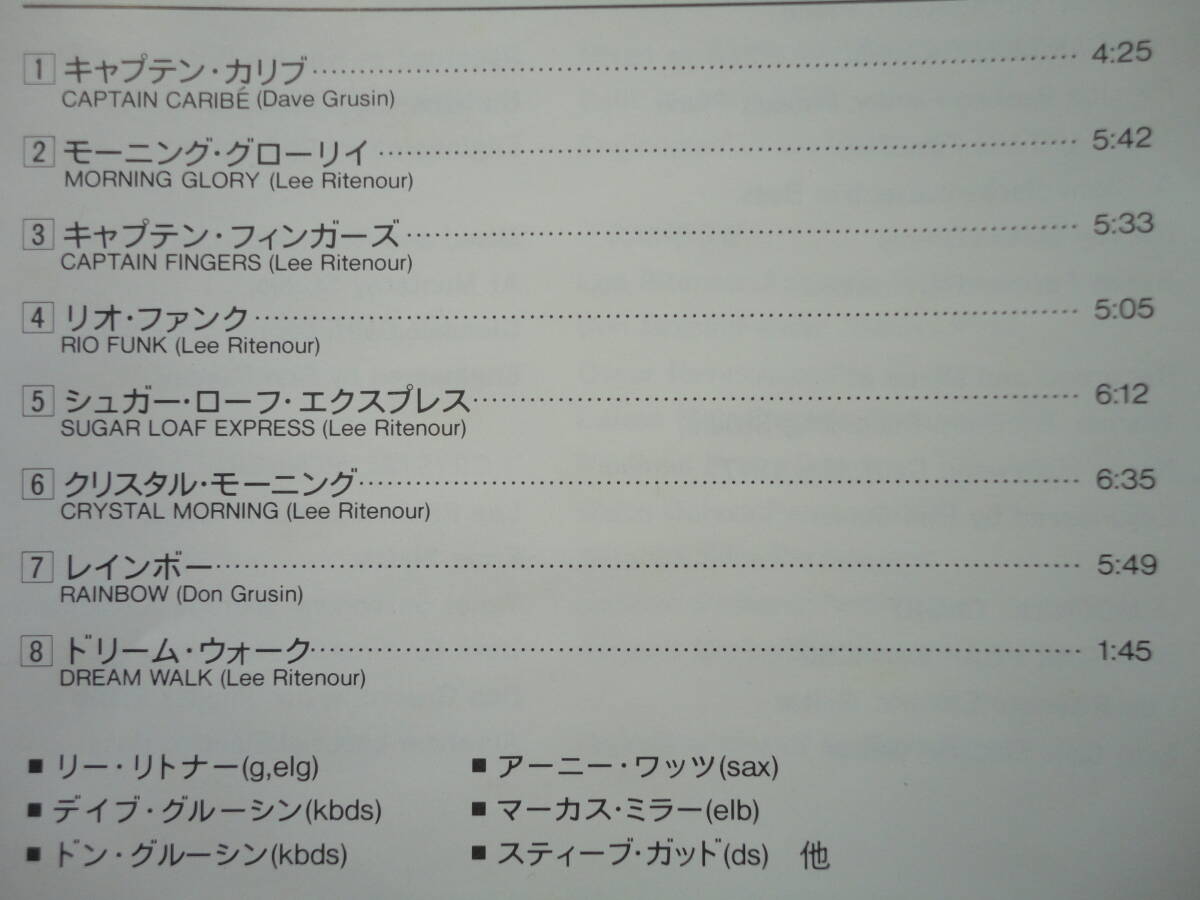 1 キャプテン・カリブ 4:25
CAPTAIN CARIBÉ (Dave Grusin)
2 モーニング・グローリイ 5:42
MORNING GLORY (Lee Ritenour)
3 キャプテン・フィンガーズ 5:33
CAPTAIN FINGERS (Lee Ritenour)
4 リオ・ファンク 5:05
RIO FUNK (Lee Ritenour)
5 シュガー・ローフ・エクスプレス 6:12
SUGAR LOAF EXPRESS (Lee Ritenour)
6 クリスタル・モーニング 6:35
CRYSTAL MORNING (Lee Ritenour)
7 レインボー 5:49
RAINBOW (Don Grusin)
8 ドリーム・ウォーク 1:45
DREAM WALK (Lee Ritenour)
■ リー・リトナー(g,elg)
■ デイブ・グルーシン(kbds)
■ ドン・グルーシン(kbds)
■ アーニー・ワッツ(sax)
■ マーカス・ミラー(elb)
■ スティーブ・ガッド(ds) 他